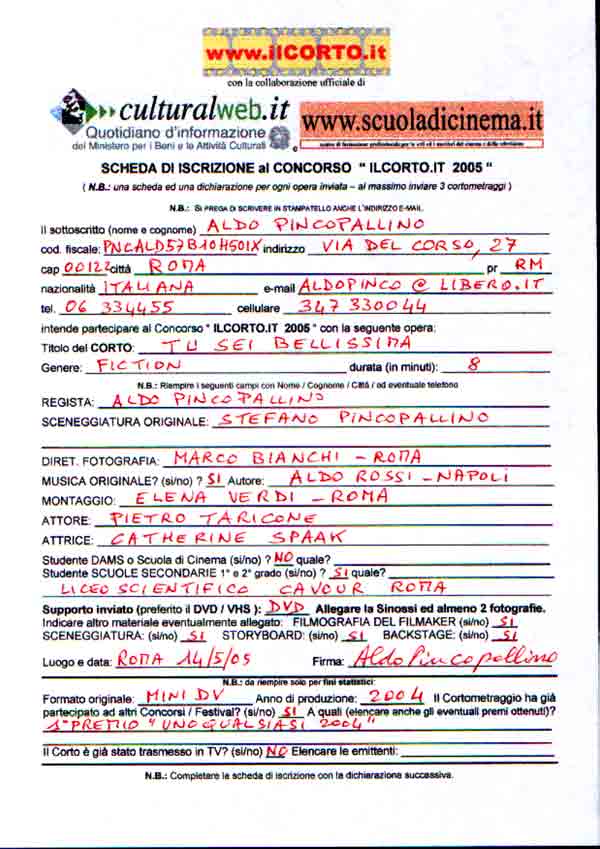 www.ilCORTO.it
con la collaborazione ufficiale di
culturalweb.it
Quotidiano d'informazione
del Ministero per i Beni e le Attività Culturali e
www.scuoladicinema.it
SCHEDA DI ISCRIZIONE al CONCORSO " ILCORTO.IT 2005 "
( N.B.: una scheda ed una dichiarazione per ogni opera inviata – al massimo inviare 3 cortometraggi )
N.B.: SI PREGA DI SCRIVERE IN STAMPATELLO ANCHE L'INDIRIZZO E-MAIL.
Il sottoscritto (nome e cognome) ALDO PINCOPALLINO
cod. fiscale: PNCALD57B10H501X indirizzo VIA DEL CORSO, 27
cap 00122 città ROMA pr RM
nazionalità ITALIANA e-mail ALDOPINCO @ LIBERO.IT
tel. 06 334455 cellulare 347 330044
intende partecipare al Concorso " ILCORTO.IT 2005 " con la seguente opera:
Titolo del CORTO: TU SEI BELLISSIMA
Genere: FICTION durata (in minuti): 8
N.B.: Riempire i seguenti campi con Nome / Cognome / Città / ed eventuale telefono
REGISTA: ALDO PINCOPALLINO
SCENEGGIATURA ORIGINALE: STEFANO PINCOPALLINO
DIRET. FOTOGRAFIA: MARCO BIANCHI – ROMA
MUSICA ORIGINALE? (si/no) ? SI Autore: ALDO ROSSI – NAPOLI
MONTAGGIO: ELENA VERDI – ROMA
ATTORE: PIETRO TARICONE
ATTRICE: CATHERINE SPAAK
Studente DAMS o Scuola di Cinema (si/no) ? NO quale?
Studente SCUOLE SECONDARIE 1° e 2° grado (si/no) ? SI quale?
LICEO SCIENTIFICO CAVOUR ROMA
Supporto inviato (preferito il DVD / VHS ): DVD Allegare la Sinossi ed almeno 2 fotografie.
Indicare altro materiale eventualmente allegato: FILMOGRAFIA DEL FILMAKER (si/no) SI
SCENEGGIATURA: (si/no) SI STORYBOARD: (si/no) SI BACKSTAGE: (si/no) SI
Luogo e data: ROMA 14/5/05 Firma: Aldo Pincopallino
N.B.: da riempire solo per fini statistici:
Formato originale: MINI DV Anno di produzione: 2004 Il Cortometraggio ha già
partecipato ad altri Concorsi / Festival? (si/no) SI A quali (elencare anche gli eventuali premi ottenuti)?
1° PREMIO "UNOQUALSIASI 2004"
Il Corto è già stato trasmesso in TV? (si/no) NO Elencare le emittenti:
N.B.: Completare la scheda di iscrizione con la dichiarazione successiva.